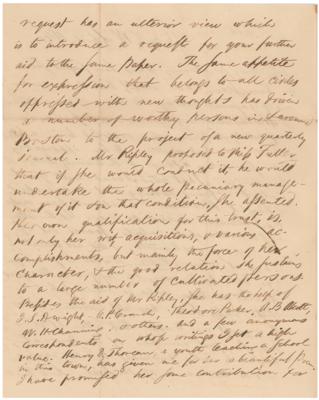 request has an ulterior view which
is to introduce a request for your further
aid to the same Paper. The same appetite
for expression that belongs to all circles
oppressed with new thoughts has driven
a number of worthy persons in & around
Boston to the project of a new quarterly
Journal. Mr Ripley proposed to Miss Fuller
that if she would conduct it, he would
undertake the whole pecuniary manage-
ment of it. On that condition, she assented.
Her own qualification for this trust, is,
not only her rich acquisitions, & various ac-
complishments, but mainly, the force of her
character, & the good relations she sustains
to a large number of cultivated persons.
Besides the aid of Mr Ripley, she has the help of
J. S. Dwight, C. P. Cranch, Theodore Parker, A. B. Alcott,
W. H. Channing, & others, and a few anonymous
correspondents on whose writings I set a high
value. Henry D Thoreau, a youth teaching a school
in this town, has given me for her a beautiful Poem.
I have promised her some contribution.